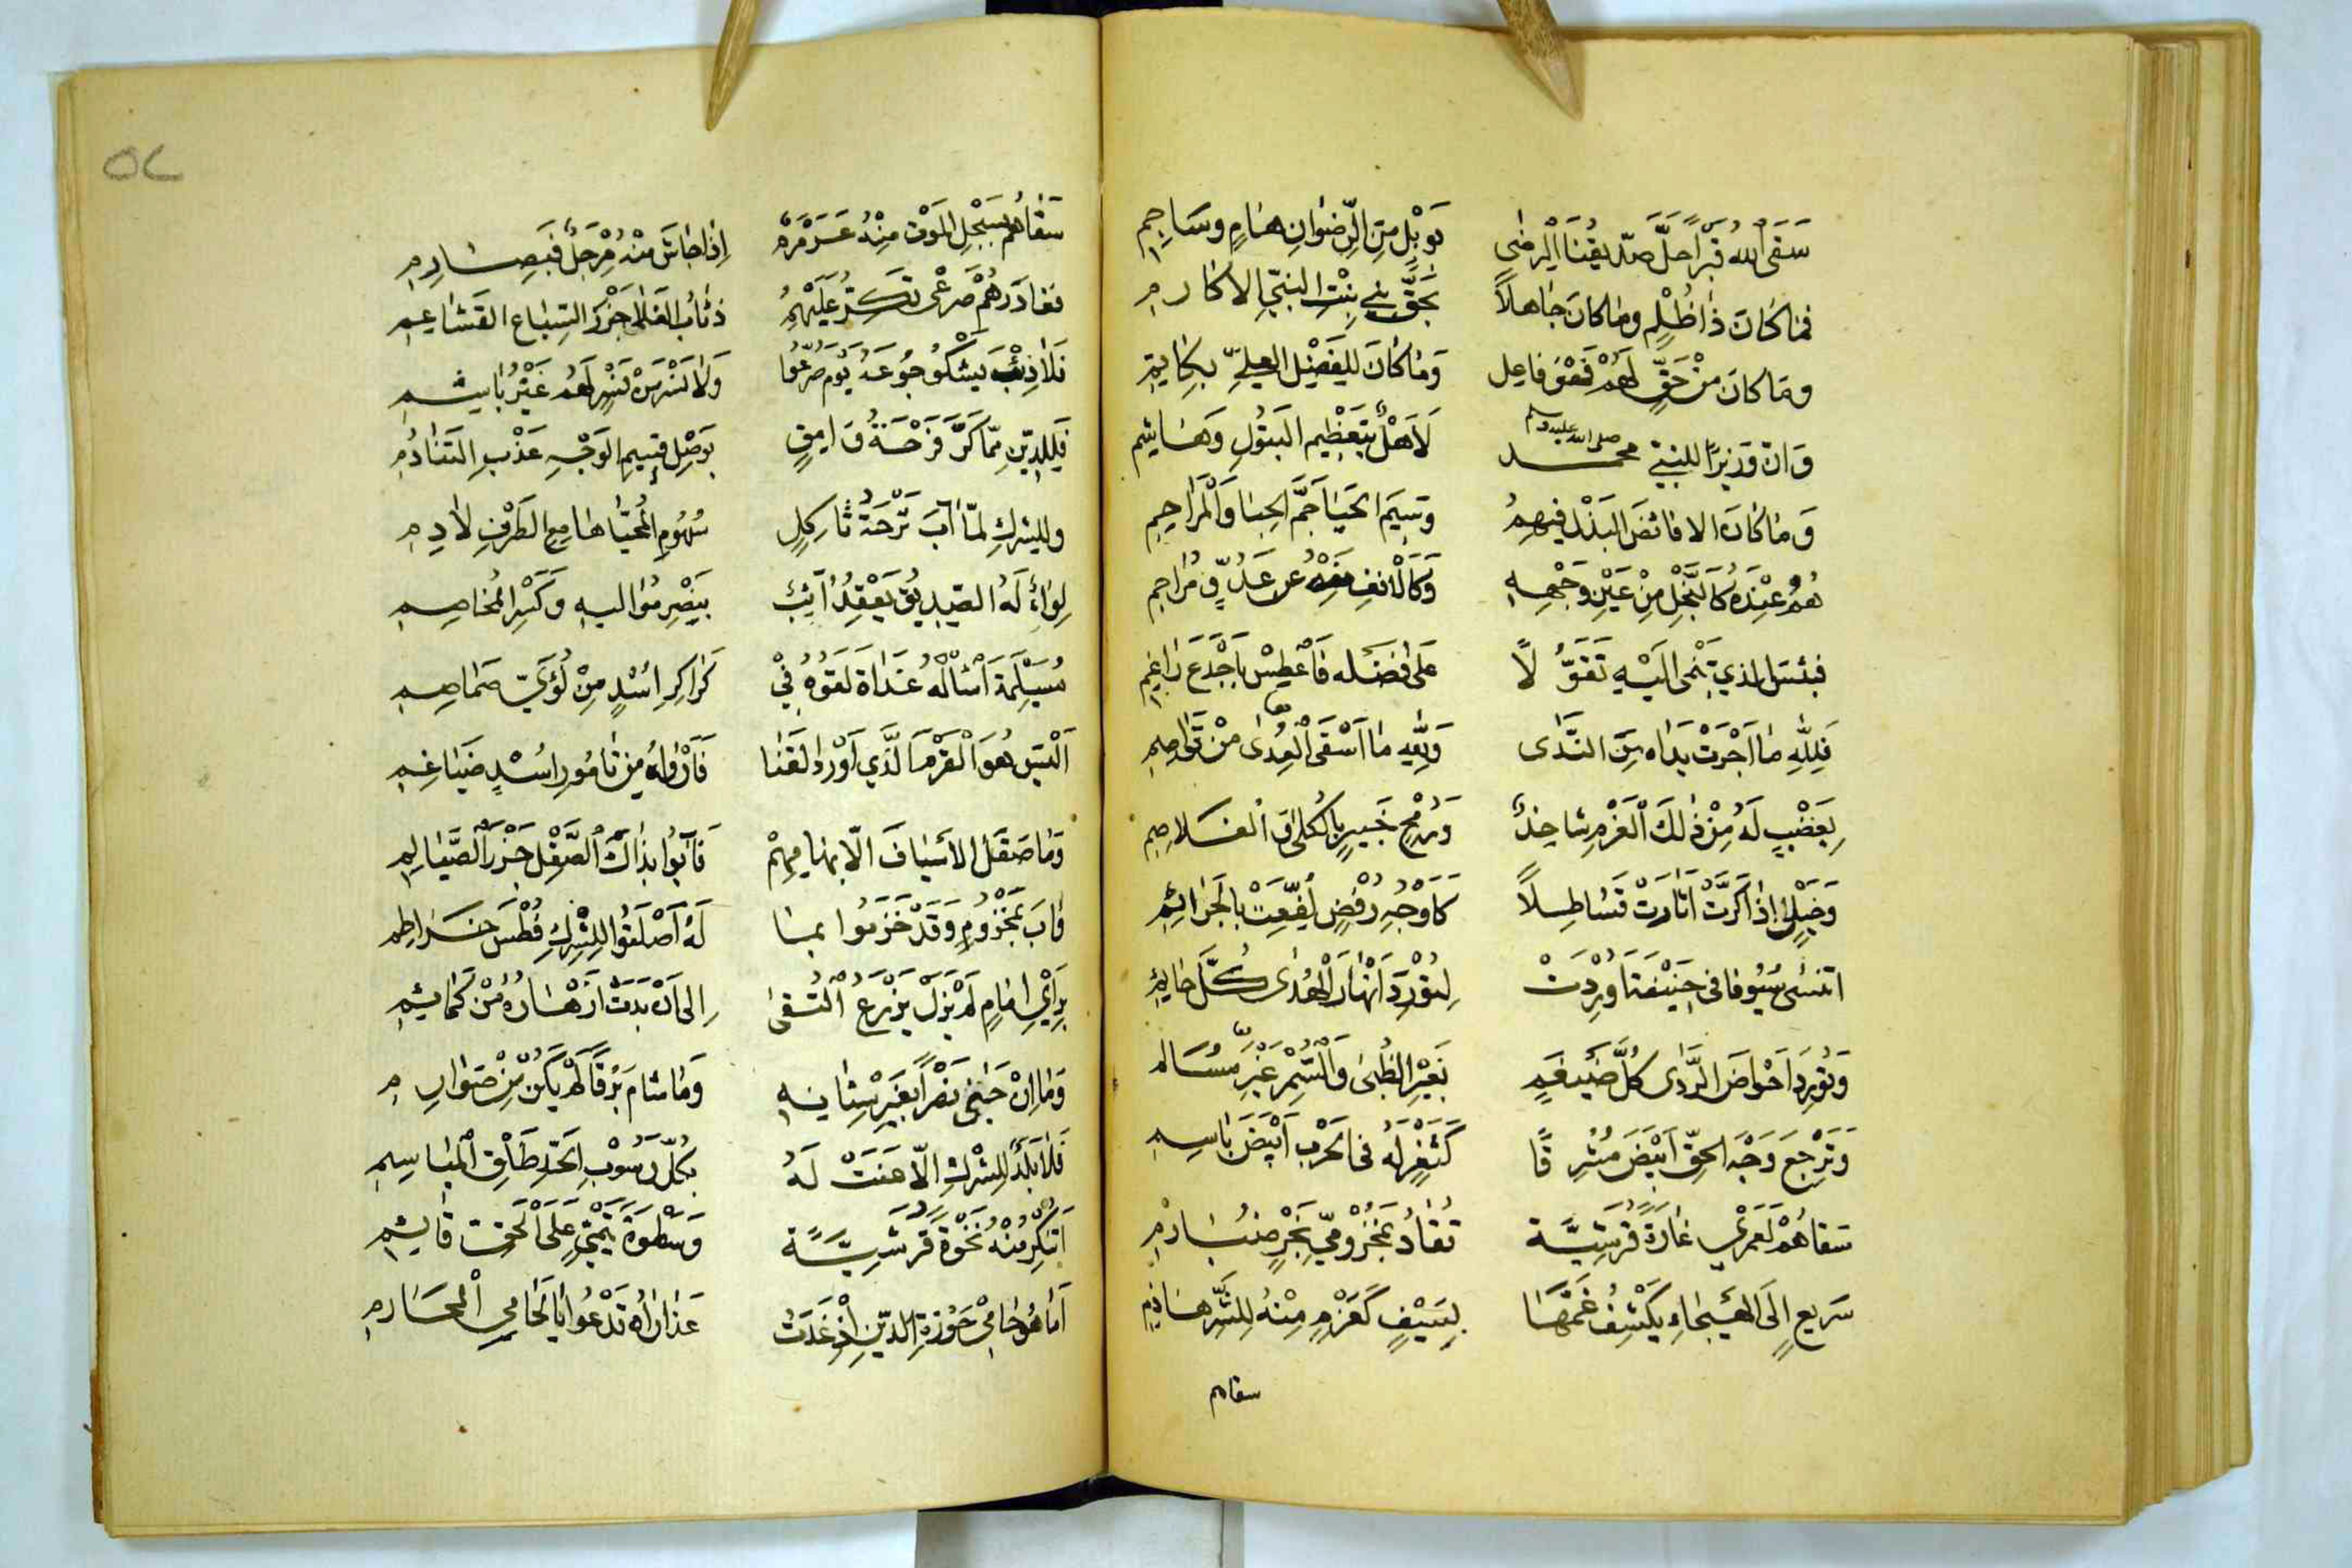 سَقَى اللهُ قَبْرًا حَلَّ صدّيقُنَا الرضى بَوَبْلٍ مِنَ الرِّضْوَانِ هَامٍ وسَاجِمِ
فمَا كَانَ ذَا ظُلْمٍ ومَا كانَ جَاهلاً بحَقّ بني بِنْتِ النبيّ الاكارمِ
ومَا كان مِنْ حَقٍّ لَهُمْ فَهْوَ فاعِل وَمَا كَانَ للفَضْلِ العليِّ بكاتِمِ
وَانّ وَزيرًا للنبيّ محمد صلى الله عليه وسلم لَاهْلٌ بتَعظِيم البتولِ وهَاشِم
وَمَا كَانَ الا فائضَ البَذْل فيهِمُ وسِيَم الحَيَا جَمَّ الحِبَا وَالْمَرَاحِمِ
هُمُ عِنْدَهُ كَالنَّجْلِ مِنْ عَيْنِ وَجْهِهِ وَكَالْانفِ مِنْهُ عن عَدُوٍّ مُرَاجِمِ
فبئسَ الذي يَنْمى الَيْهِ تَقَوُّلًا عَلى فضله فَاعْطِسْ بِاَجْدَعَ رَاغِمِ
فَلِلّهِ مَا اَجْرَتْ يَدَاه مِنَ النَّدَى وَلِلّهِ مَا اَسْقَى العِدَى مِنْ
بِعَضْبٍ لَهُ مِنْ ذٰلِكَ الْعَزْمِ شاحِذٌ وَرُمْحٍ خَبِيرٍ بِالكُلَى وَالغلاصِمِ
وَخَيْلٍ اِذَا كَرَّتْ اَثَارَتْ قَسَاطِلاً كَاَوْجُهِ رُفْضٍ لُفِّعَتْ بالجَرَائِمِ
اتنسَى سُيُوفا في حَنِيْفَةَ اُورِدَتْ لِتُوْرِدَ اَنْهَارَ الْهُدَى كُلَّ حَائِمِ
وَتُورِدَ اَحْوَاضَ الرَّدَى كُلَّ ضَيْغَمٍ بَغَيْرِ الظُبَى وَالسُّمْرِ غَيْرِ مُسَالم
وَتُرْجِعَ وَجْهَ الحَقِّ اَبْيَضَ مُشْرِقًا كَثَغْرٍ لَهُ في الحَرْب اَبْيَضَ بَاسِمِ
سَقاهُمْ لَعَمْرِي غَارَةً قُرَشِيَّة تُقَادُ بمَخْزُوْمِيّ بَحْرٍ ضُبَارِمِ
سَرِيعٍ اِلَى الهَيْجَاءِ يَكْشِفُ غَمَّهَا بِسَيْفٍ كَعَزْمٍ مِنْهُ لِلشَّرِّ هَاذِمِ
سقاهم
سَقَاهُم بسَجْلِ المَوْت مِنْهُ عَرَمْرَمٌ اِذَا جَاشَ مِنْهُ مِرْجَلٌ فبِصَارِمِ
فغادَرَهُمْ صَرْعَى تَكرّ عَلَيْهِمُ ذئابُ الفلا جَزْرَ السِّبَاع القَشَاعِم
فَلَا ذِئْبَ يَشْكُو جُوعَهُ يَوْم صُرِّعُوا وَلَا نَسْرَ مِنْ نَسْرٍ لَهُم غَيْرُ بَاشِمِ
فَلِلدِّينِ مِمّا كَرَّ فَرْحَةُ وَامِقٍ بِوَصْلِ قَسِيمِ الوَجْهِ عَذْبِ التَنَادُمِ
وللِشركِ لمّا آبَ تَرْحَةُ ثَاكِلٍ سُهُومِ المُحَيَّا هَامِعِ الطَرْفِ لَادِمِ
لِوَاءٌ لَهُ الصّدِيقُ يَعْقِدُ آئِبٌ بِنَصْرِ مُوَاليهِ وَكَسْرِ المُخَاصِمِ
مُسَيْلِمَةَ اسْاَلْهُ غَدَاةَ لَقُوهُ فِيْ كَرَاكِرِ اُسْدٍ مِنْ لُؤَيّ صَمَاصِمِ
اَلَيْسَ هُوَ الْقَرْمَ الَّذِي اَوْرَدَ القَنَا فَاَرْوَاهُ مِن تَامُورِ اُسْدٍ ضَيَاغِمِ
وَمَا صَقَلَ الأَسْيَافَ الّا بهَامِهِمْ فَآبُوا بذَاكَ الصَّقْلِ جَزْرَ الصَّيَالِمِ
وَآبَ بمَخْزُومٍ وَقَدْ خَزَمُوا بمَا لَهُ اَصْلَتُوا لِلشِّرْكِ فُطْسَ خَرَاطِمِ
بِرَأْيِ اِمَامٍ لَمْ يَزَلْ يَزْرَعُ التُّقَى اِلى اَنْ بَدَتْ اَزْهَارُهُ مِنْ كَمَائِمِ
وَمَا اِنْ جَنَى نَصْرًا بغَيْرِ سِنَانِهِ وَمَا شَامَ بَرْقًا لَمْ يَكُنْ مِنْ صَوَارِمِ
فَلَا بَلَدٌ لِلشِّرْكِ اِلّا عَنَتْ لَهُ بكُلِّ رَسُوْبِ الحَدِّ طَلْقِ المَبَاسِمِ
اَتُنْكِرُ مِنْهُ نَخْوَةً قُرَشِيَّةً وَسَطْوَةَ تَيْمِيٍّ عَلَى الْحَقّ قَائِمِ
اَمَا هُوَ حَامِي حَوْزَةِ الدِّينِ اِذْ غَدَتْ عَذَارَاهُ تَدْعُو اَيَا لحَامِي الْمحَارمِ